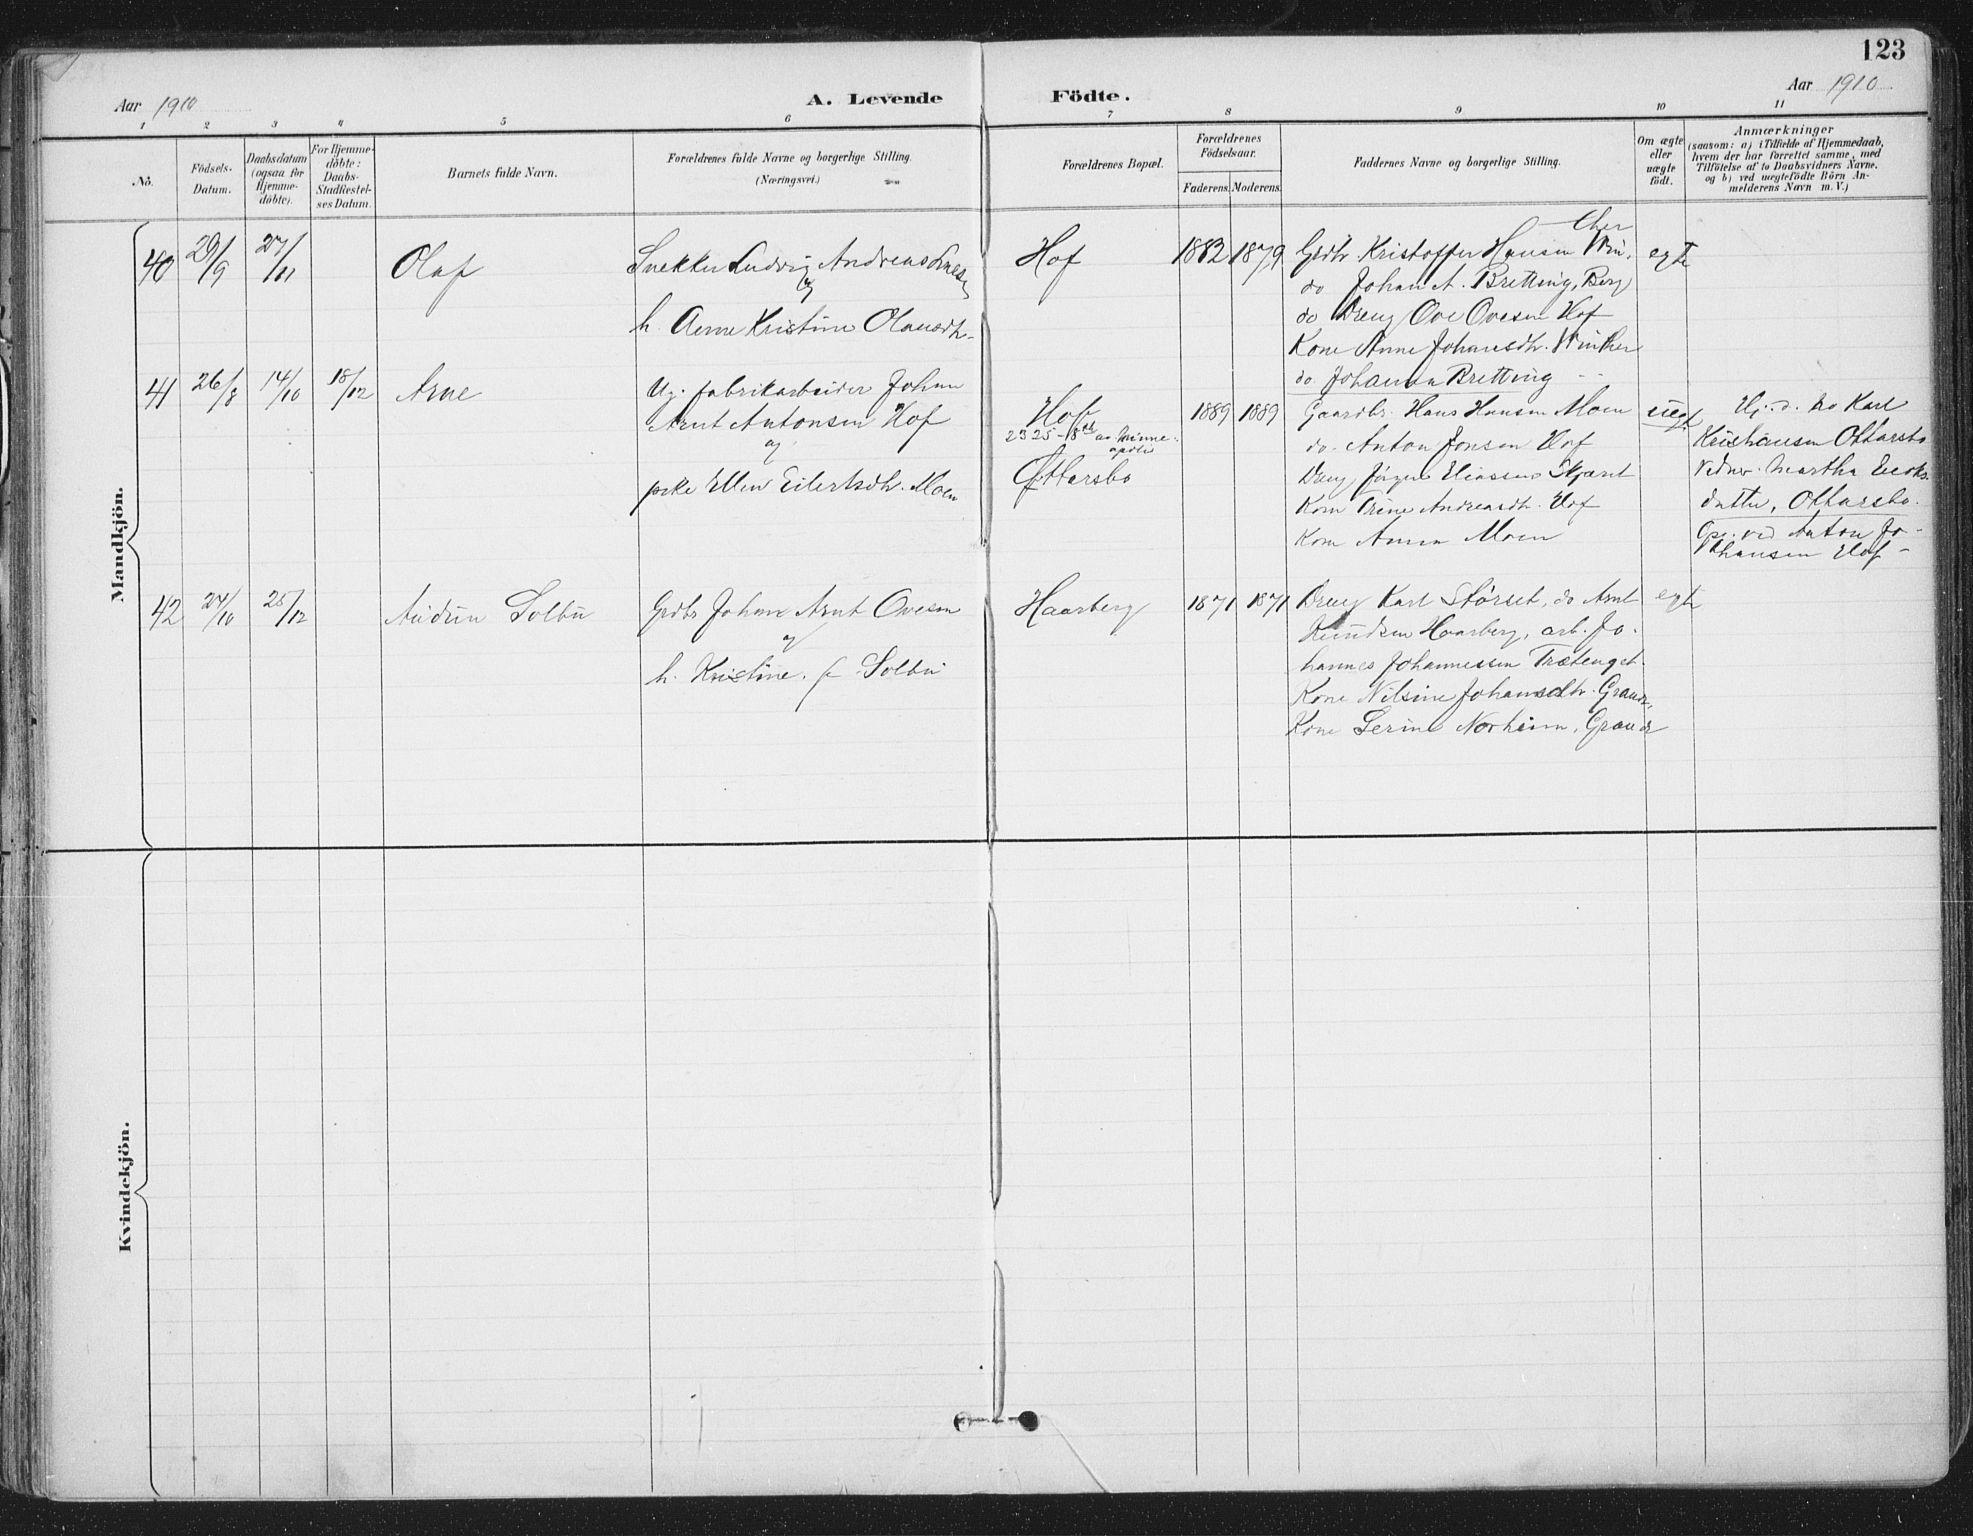 123
Aar 1910
A. Levende Födte.
Aar 1910
1 2 3 4 5 6 7 8 9 10 11
No.
Födsels-
Datum.
Daabsdatum
(ogsaa for
Hjemme-
döbte).
For Hjemme-
döbte:
Daabs-
Stadfæstel-
ses Datum.
Barnets fulde Navn.
Forældrenes fulde Navne og borgerlige Stilling.
(Næringsvei.)
Forældrenes Bopæl.
Forældrenes
Födselsaar.
Faderens. Moderens.
Faddernes Navne og borgerlige Stilling.
Om ægte
eller
uægte
födt.
Anmærkninger
(saasom: a) i Tilfælde af Hjemmedaab,
hvem der har forrettet samme, med
Tilföielse af to Daabsvidners Navne.
og b) ved uægtefödte Börn An-
melderens Navn m. V.)
Mandkjön.
40
29/9
27/11
Olaf
Snekker Ludvig Andreas
og
h. Anne Kristine Olausdtr.
Hof
1882
1879
ther
Grdbr. Kristoffer Hansen Win-
do Johan A. Bretting, Berg
do Dreng Ove Ovesen Hof
Kone Anne Johansdtr. Winther
do. Johanna Bretting - -
egte
41
26/8
14/10
18/12
Arne
Ug. fabrikarbeider Johan
Arnt Antonsen Hof
og
pike Ellen Eilertsdtr. Moen
Hof
2325 - 18 av. Minne-
apolis
Ottarsbo
1889
1889
Gaardbr. Hans Hansen Moen
do. Anton Jonsen Hof
Dreng Jörgen Eliassen
Kone Trine Andreasdtr. Hof
Kone Anna Moen
uegt.
Hj. d. Karl
Kristiansen Ottarsbo
Vidner. Martha
datter, Ottarsbo.
Opg. ved Anton Jo-
hansen Hof -
42
24/10
25/12
Audun Solbu
Grdbr Johan Arnt Ovesen
og
h. Kristine. f. Solbu
Haarberg
1871
1871
Dreng Karl Störset, do Arnt
Knudsen Haarberg, arb. Jo-
hannes Johannessen Trætenget.
Kone Nilsine Johansdtr. Grande,
Kone Serine Norheim, Grande
egte
Kvindekjön.